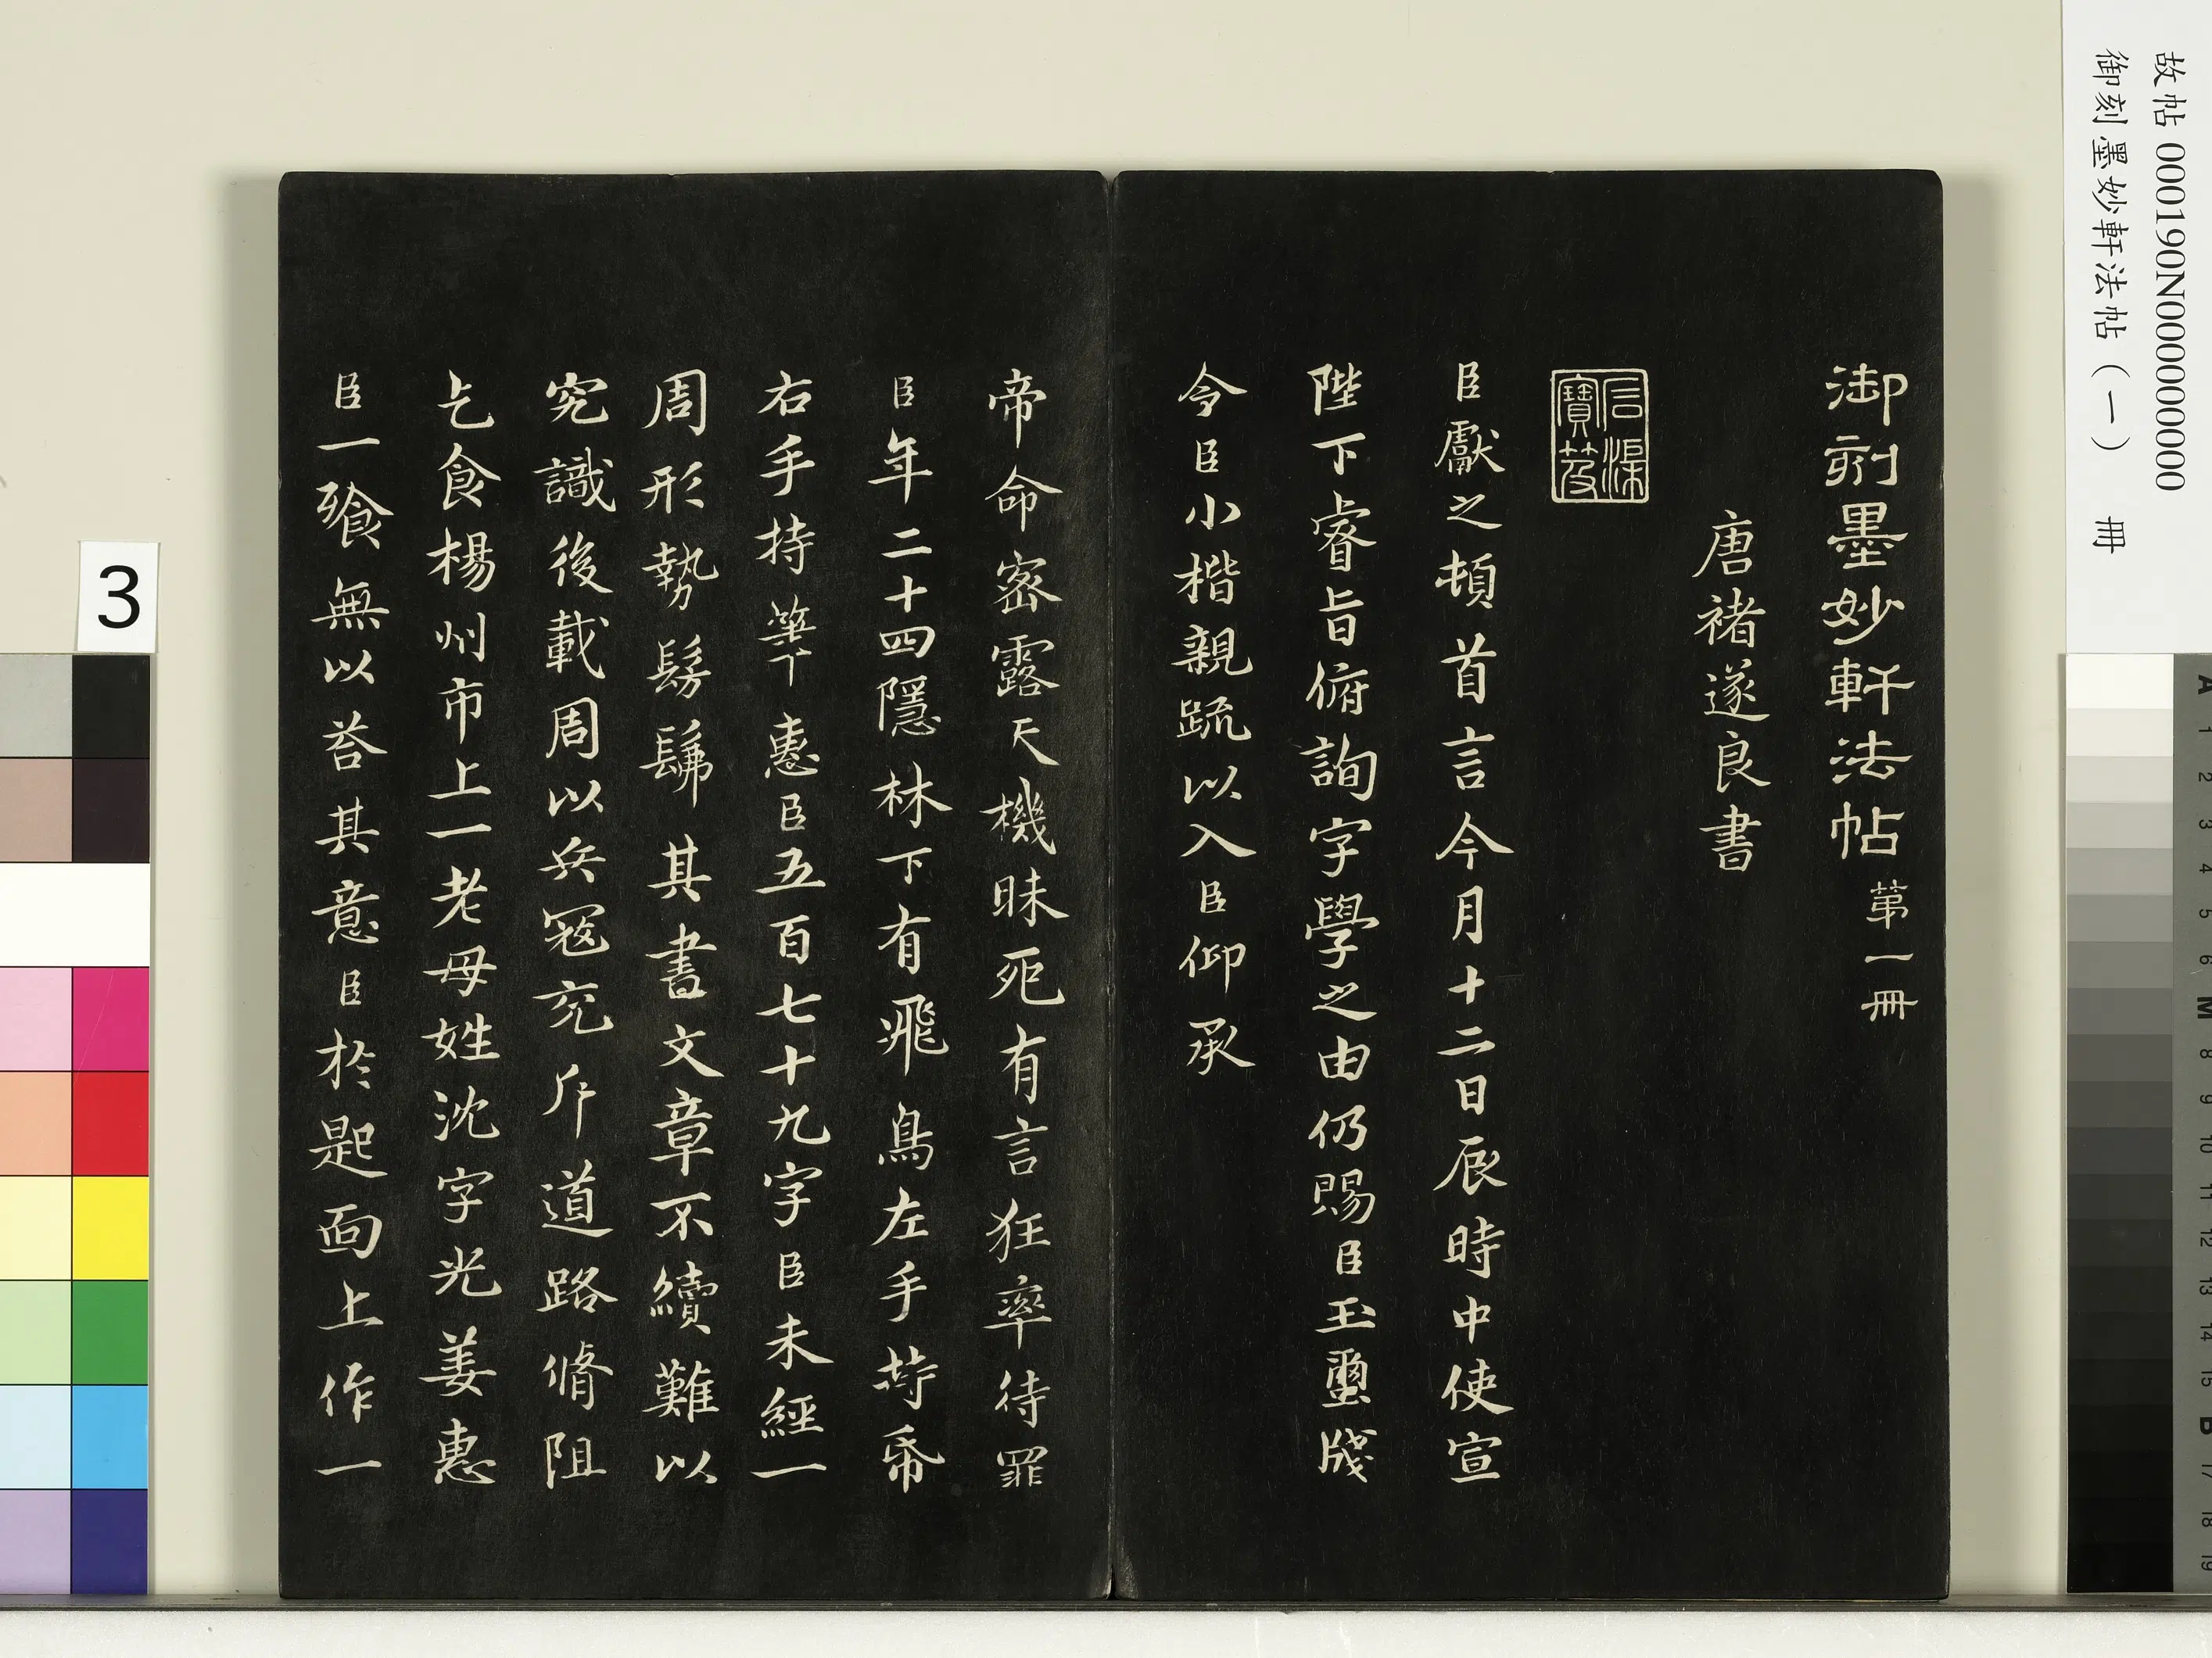 故帖 000190N000000000
御刻墨妙軒法帖（一） 冊
御刻墨妙軒法帖 第一冊
唐褚遂良書
石渠寶笈
臣獻之頓首言今月十二日辰時中使宣
陛下睿旨俯詢字學之由仍賜臣玉璽牋
令臣小楷親疏以入臣仰承
帝命密露天機昧死有言狂率待罪
臣年二十四隱林下有飛鳥左手持帋
右手持筆惠臣五百七十九字臣未經一
周形勢髣髴其書文章不續難以
究識後載周以兵寇充斥道路脩阻
乞食楊州市上一老母姓沈字光姜惠
臣一飱無以荅其意臣於匙面上作一
3